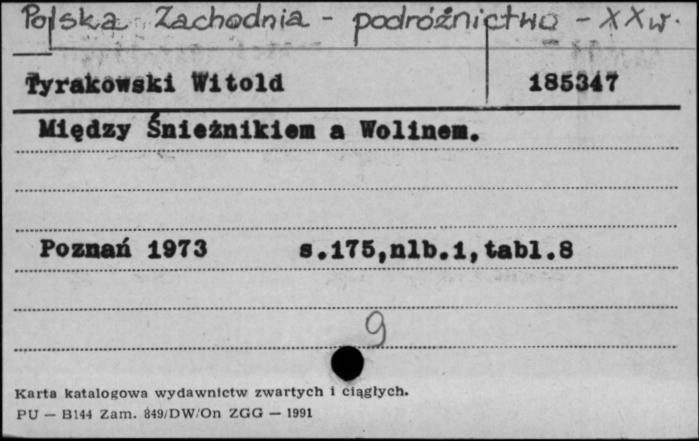 Polska Zachodnia - podróżnictwo - XX w.
Tyrakowski Witold 185347
Między Śnieżnikiem a Wolinem.
Poznań 1973 s.175,nlb.1,tabl.8
9
Karta katalogowa wydawnictw zwartych i ciągłych.
PU — B144 Zam. 849/DW/On ZGG — 1991